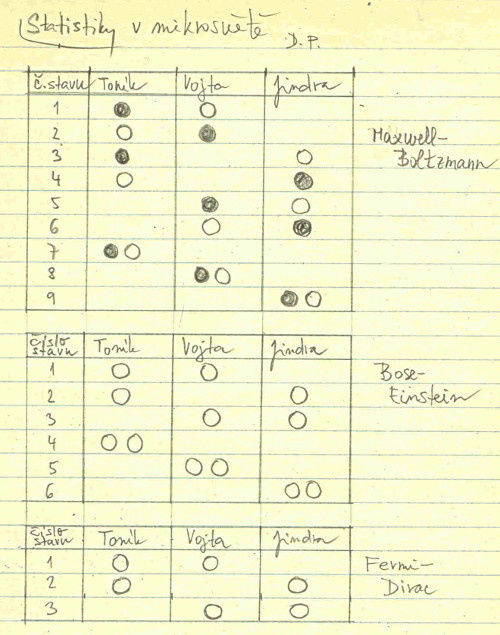 Statistiky v mikrosvětě D.P.
č.stavu Tonik Vojta Jindra
1
2
3
4
5
6
7
8
9
Maxwell-
Boltzmann
číslo
stavu Tonik Vojta Jindra
1
2
3
4
5
6
Bose-
Einstein
číslo
stavu Tonik Vojta Jindra
1
2
3
Fermi-
Dirac